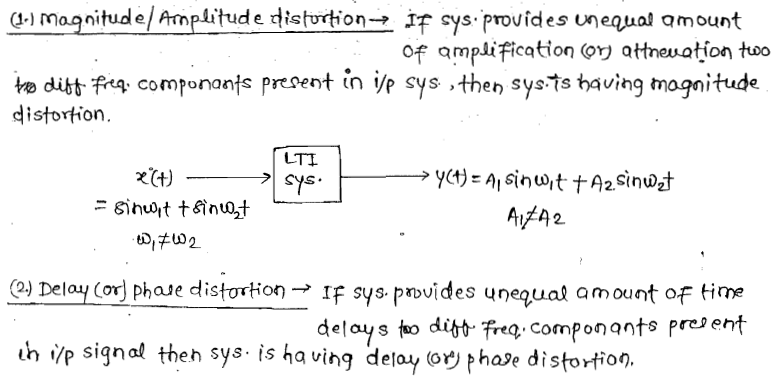 (1.) Magnitude/Amplitude distortion → If sys. provides unequal amount
of amplification (or) attneuation two
to diff. freq. componants present in i/p sys., then sys. is having magnitude
distortion.
LTI
x(t) → sys. → y(t) = A₁ sinω₁t + A₂ sinω₂t
= sinω₁t + sinω₂t
A₁≠A₂
ω₁≠ω₂
(2.) Delay (or) phase distortion → If sys. provides unequal amount of time
delays too diff. freq. componants present
in i/p signal then sys. is having delay (or) phase distortion.